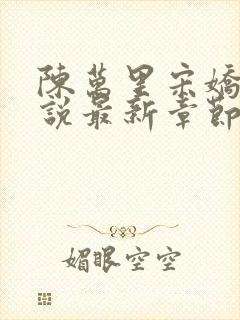 陳萬里宋嬌
說最新章節
媚眼空空